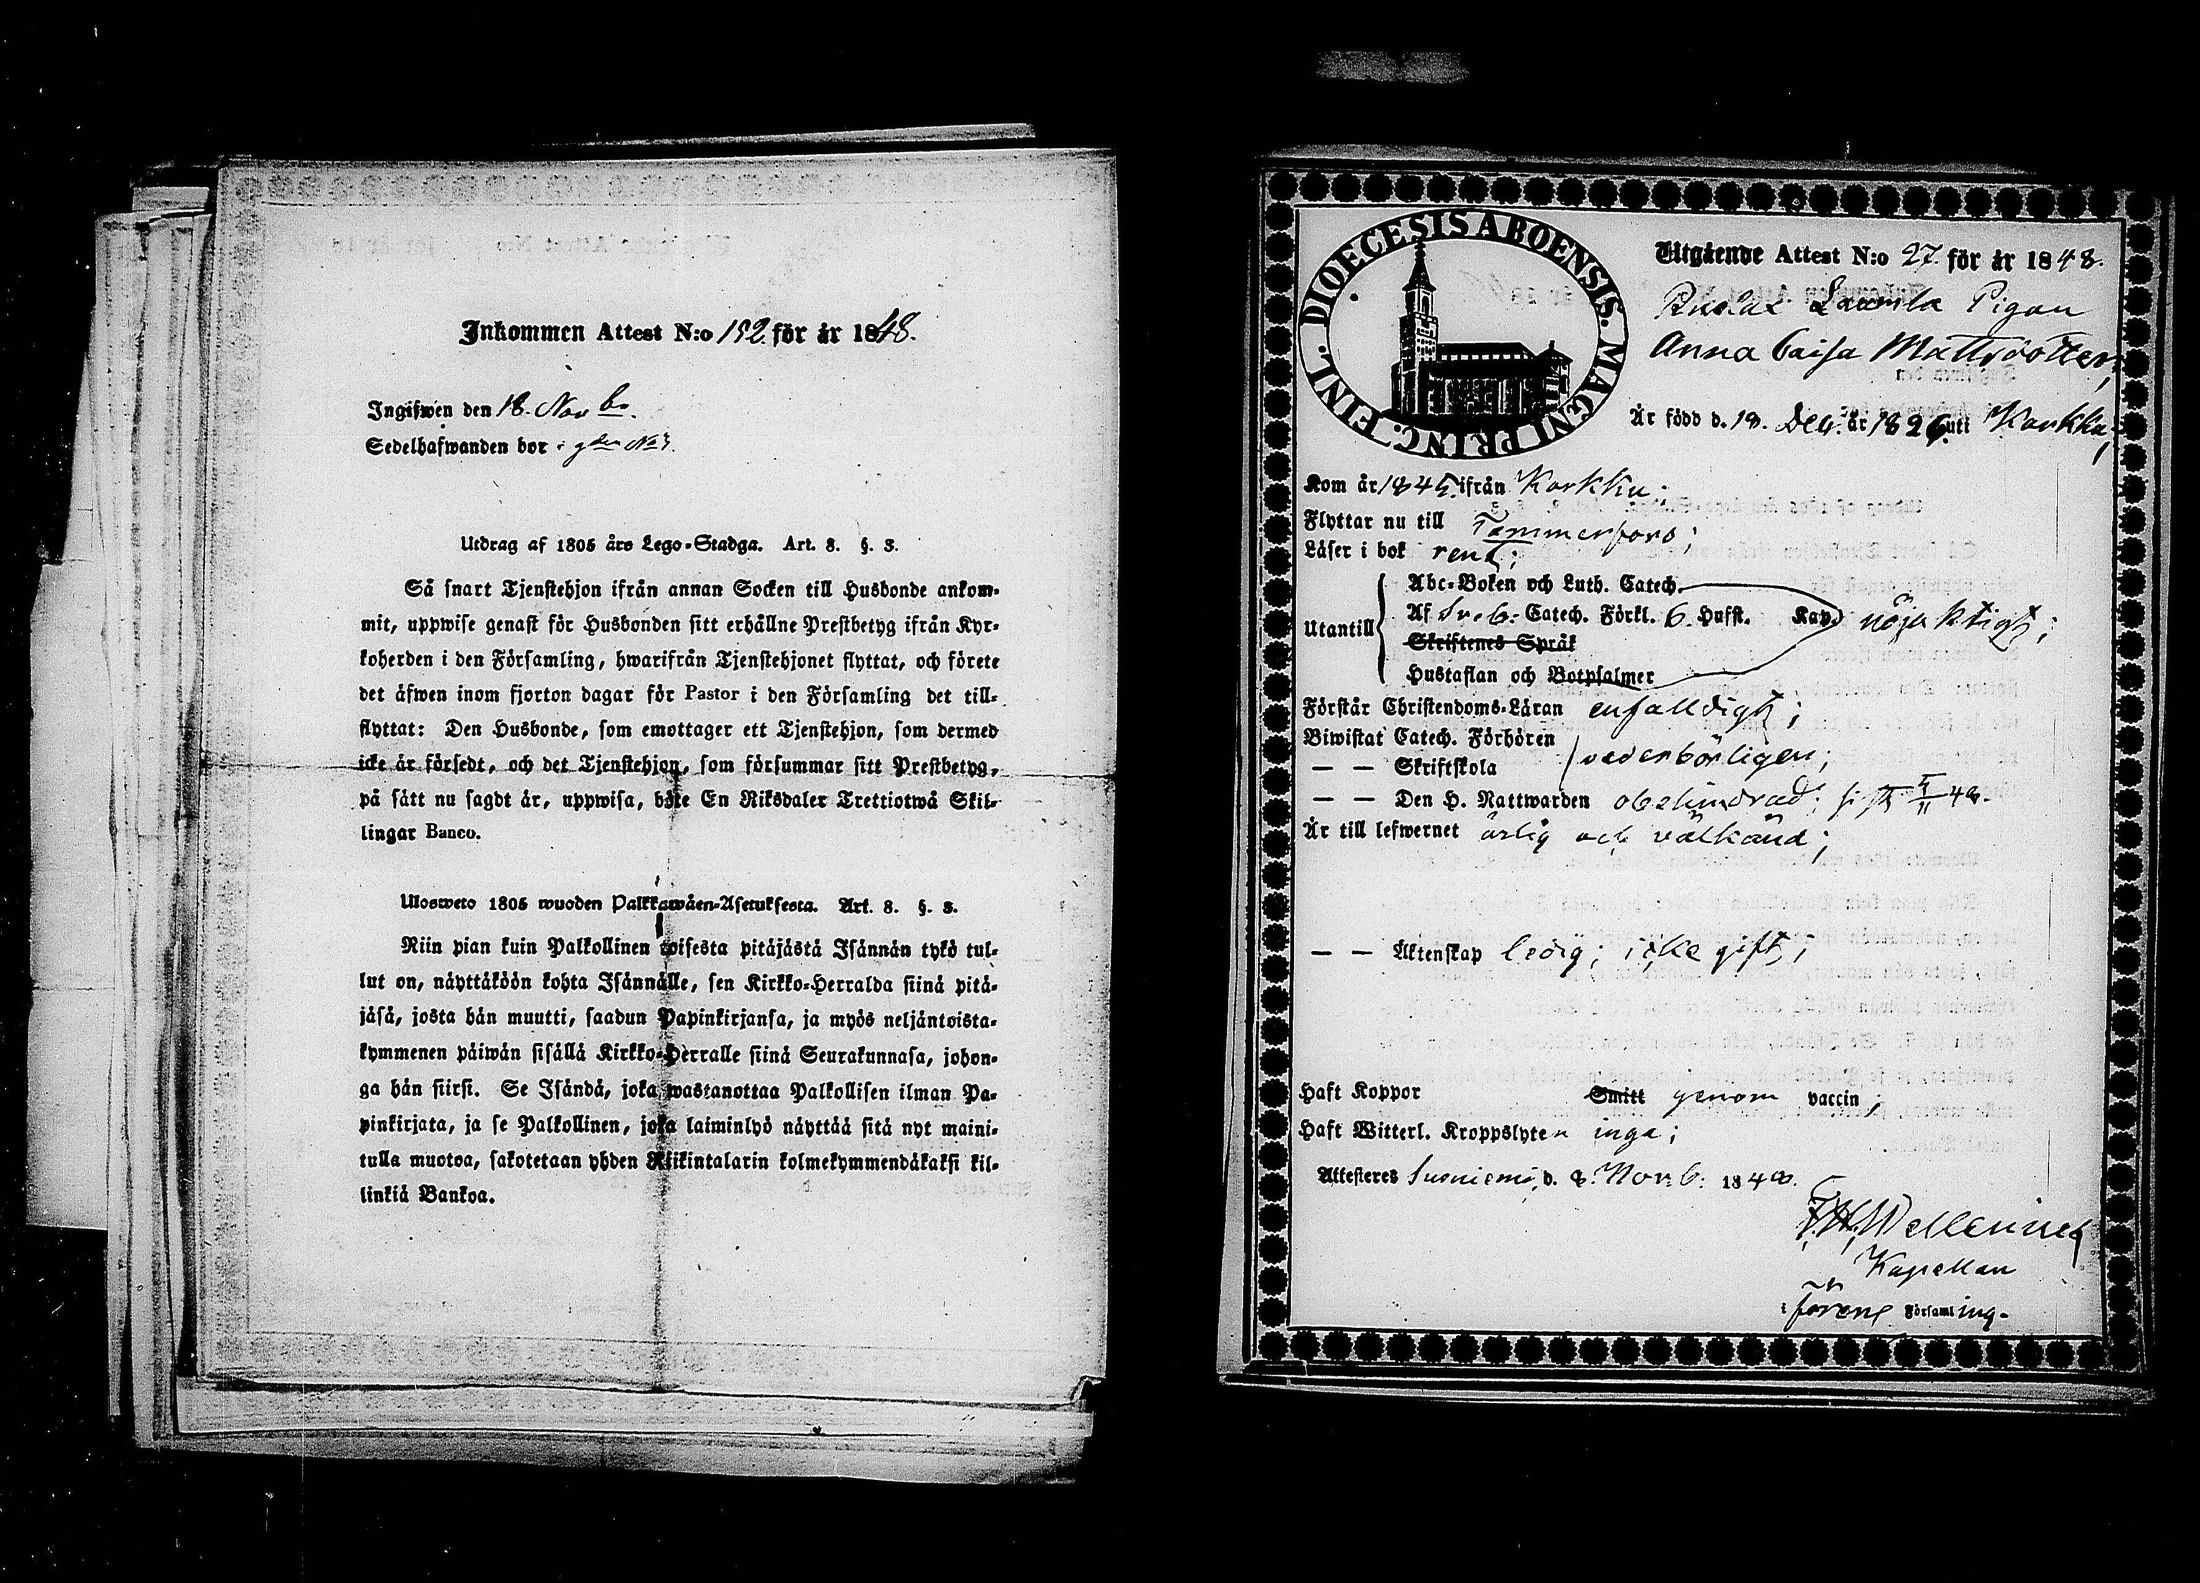 Inkommen Attest N:o 152 för år 1848.
Ingifwen den 18. Novb.
Sedelhafwanden bor
Utdrag af 1805 års Lego-Stadga. Art. 8. §. 3.
Så snart Tjenstehjon ifrån annan Socken till Husbonde ankom-
mit, uppwise genast för Husbonden sitt erhållne Prestbetyg ifrån Kyr-
koherden i den Församling, hwarifrån Tjenstehjonet flyttat, och förete
det äfwen inom fjorton dagar för Pastor i den Församling det till-
flyttat: Den Husbonde, som emottager ett Tjenstehjon, som dermed
icke är försedt, och det Tjenstehjon, som försummar sitt Prestbetyg,
på sätt nu sagdt är, uppwisa, böte En Riksdaler Trettiotwå Skil-
lingar Banco.
Ulosweto 1805 wuoden Palkkawäen-Asetuksesta. Art. 8. §. 3.
Niin pian kuin Palkollinen toisesta pitäjästä Isännän tykö tul-
lut on, näyttäköön kohta Isännälle, sen Kirkko-Herralda siinä pitä-
jäsä, josta hän muutti, saadun Papinkirjansa, ja myös neljäntoista-
kymmenen päiwän sisällä Kirkko-Herralle siinä Seurakunnasa, johon-
ga hän siirsi. Se Isändä, joka wastanottaa Palkollisen ilman Pa-
pinkirjata, ja se Palkollinen, joka laiminlyö näyttää sitä nyt maini-
tulla muotoa, sakotetaan yhden Riikintalarin kolmekymmendäkaksi kil-
linkiä Bankoa.
DIOECESIS ABOENSIS. MAGNI PRINC. FINL.
Utgående Attest N:o 27. för år 1848.
Pigan
Anna Caisa Mattsdotter,
Är född d. 18. Dec. år 1826. uti Karkku,
Kom år 1845. ifrån Karkku;
Flyttar nu till Tammerfors;
Läser i bok rent;
Utantill
Abc-Boken och Luth. Catech.
Af Sv. b. Catech. Förkl. 6. Hufst. Kap. nöjaktigt;
Skriftenes Språk
Hustaflan och Botpsalmer
Förstår Christendoms-Läran enfalldigt;
Biwistat Catech. Förhören
— — Skriftskola vederbörligen;
— — Den H. Nattwarden obehindrad; sist 5/11 48.
Är till lefwernet ärlig och välkänd;
— — Äktenskap ledig; icke gift;
Haft Koppor Smitt genom vaccin;
Haft Witterl. Kroppslyten inga;
Attesteres Suoniemi, d. 8. Novb. 1848.
Kapellan
i förene Församling.